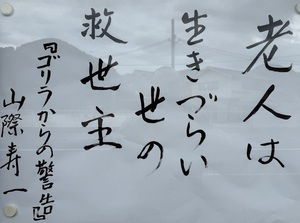 老人は
生きづらい
世の
救世主
『ゴリラからの警告』
山際寿一